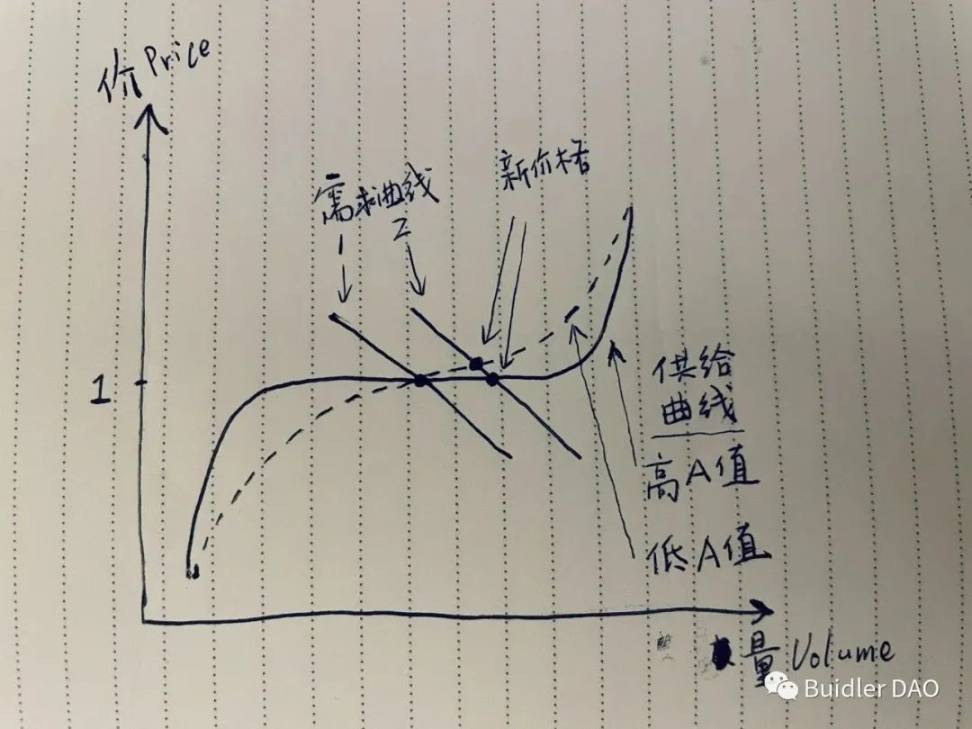 价 Price
新价格
需求曲线
1 2
1
供给
曲线
高A值
低A值
量 Volume
Buidler DAO